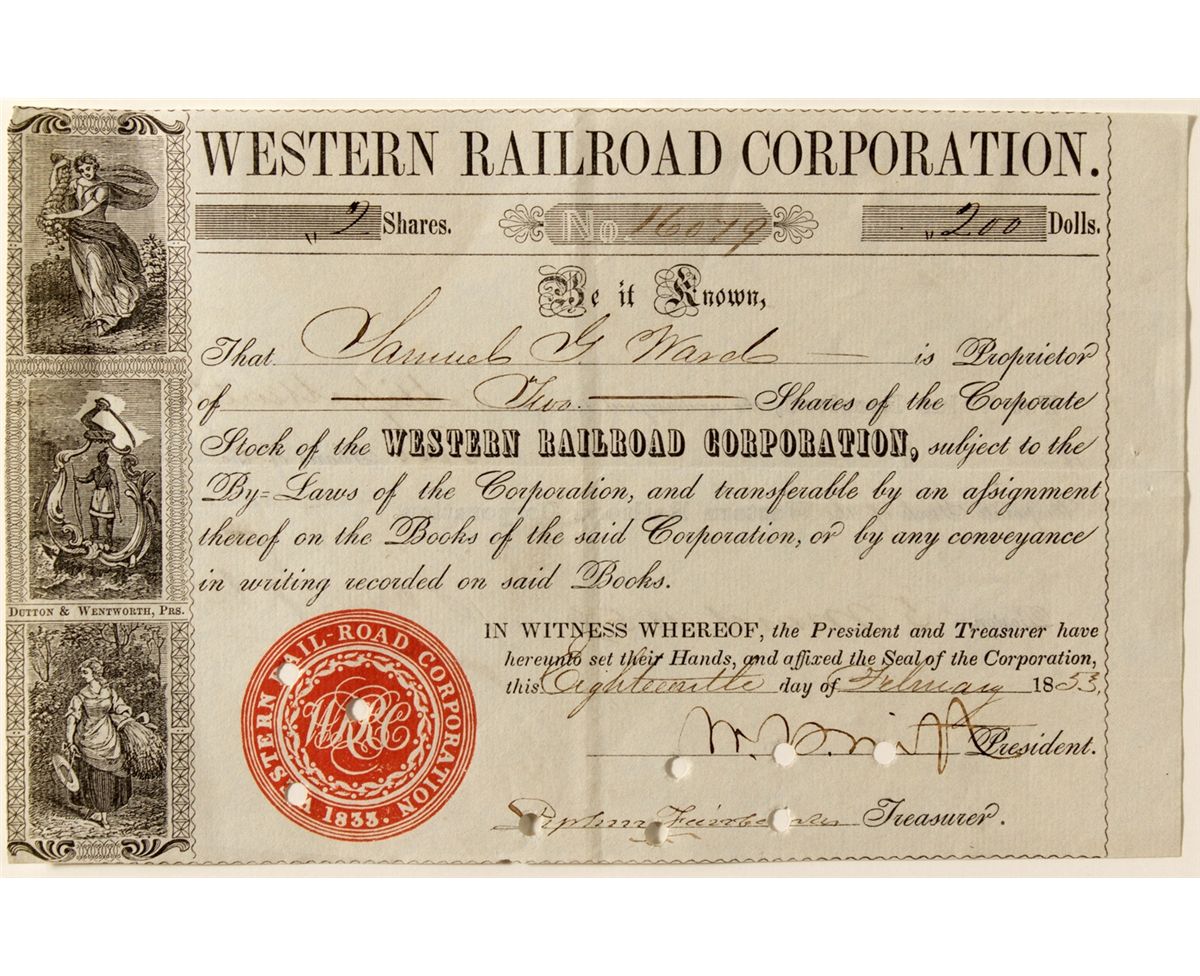 WESTERN RAILROAD CORPORATION.
" 2 Shares. No. 16079 " 200 Dolls.
Be it Known,
That Samuel G Ward is Proprietor
of Two Shares of the Corporate
Stock of the WESTERN RAILROAD CORPORATION, subject to the
By=Laws of the Corporation, and transferable by an aſsignment
thereof on the Books of the said Corporation, or by any conveyance
in writing recorded on said Books.
DUTTON & WENTWORTH, PRS.
IN WITNESS WHEREOF, the President and Treasurer have
hereunto set their Hands, and affixed the Seal of the Corporation,
this Eighteenth day of February 1853.
President.
Stephen Fairbanks Treasurer.
WESTERN RAIL-ROAD CORPORATION
1833.
WRRC